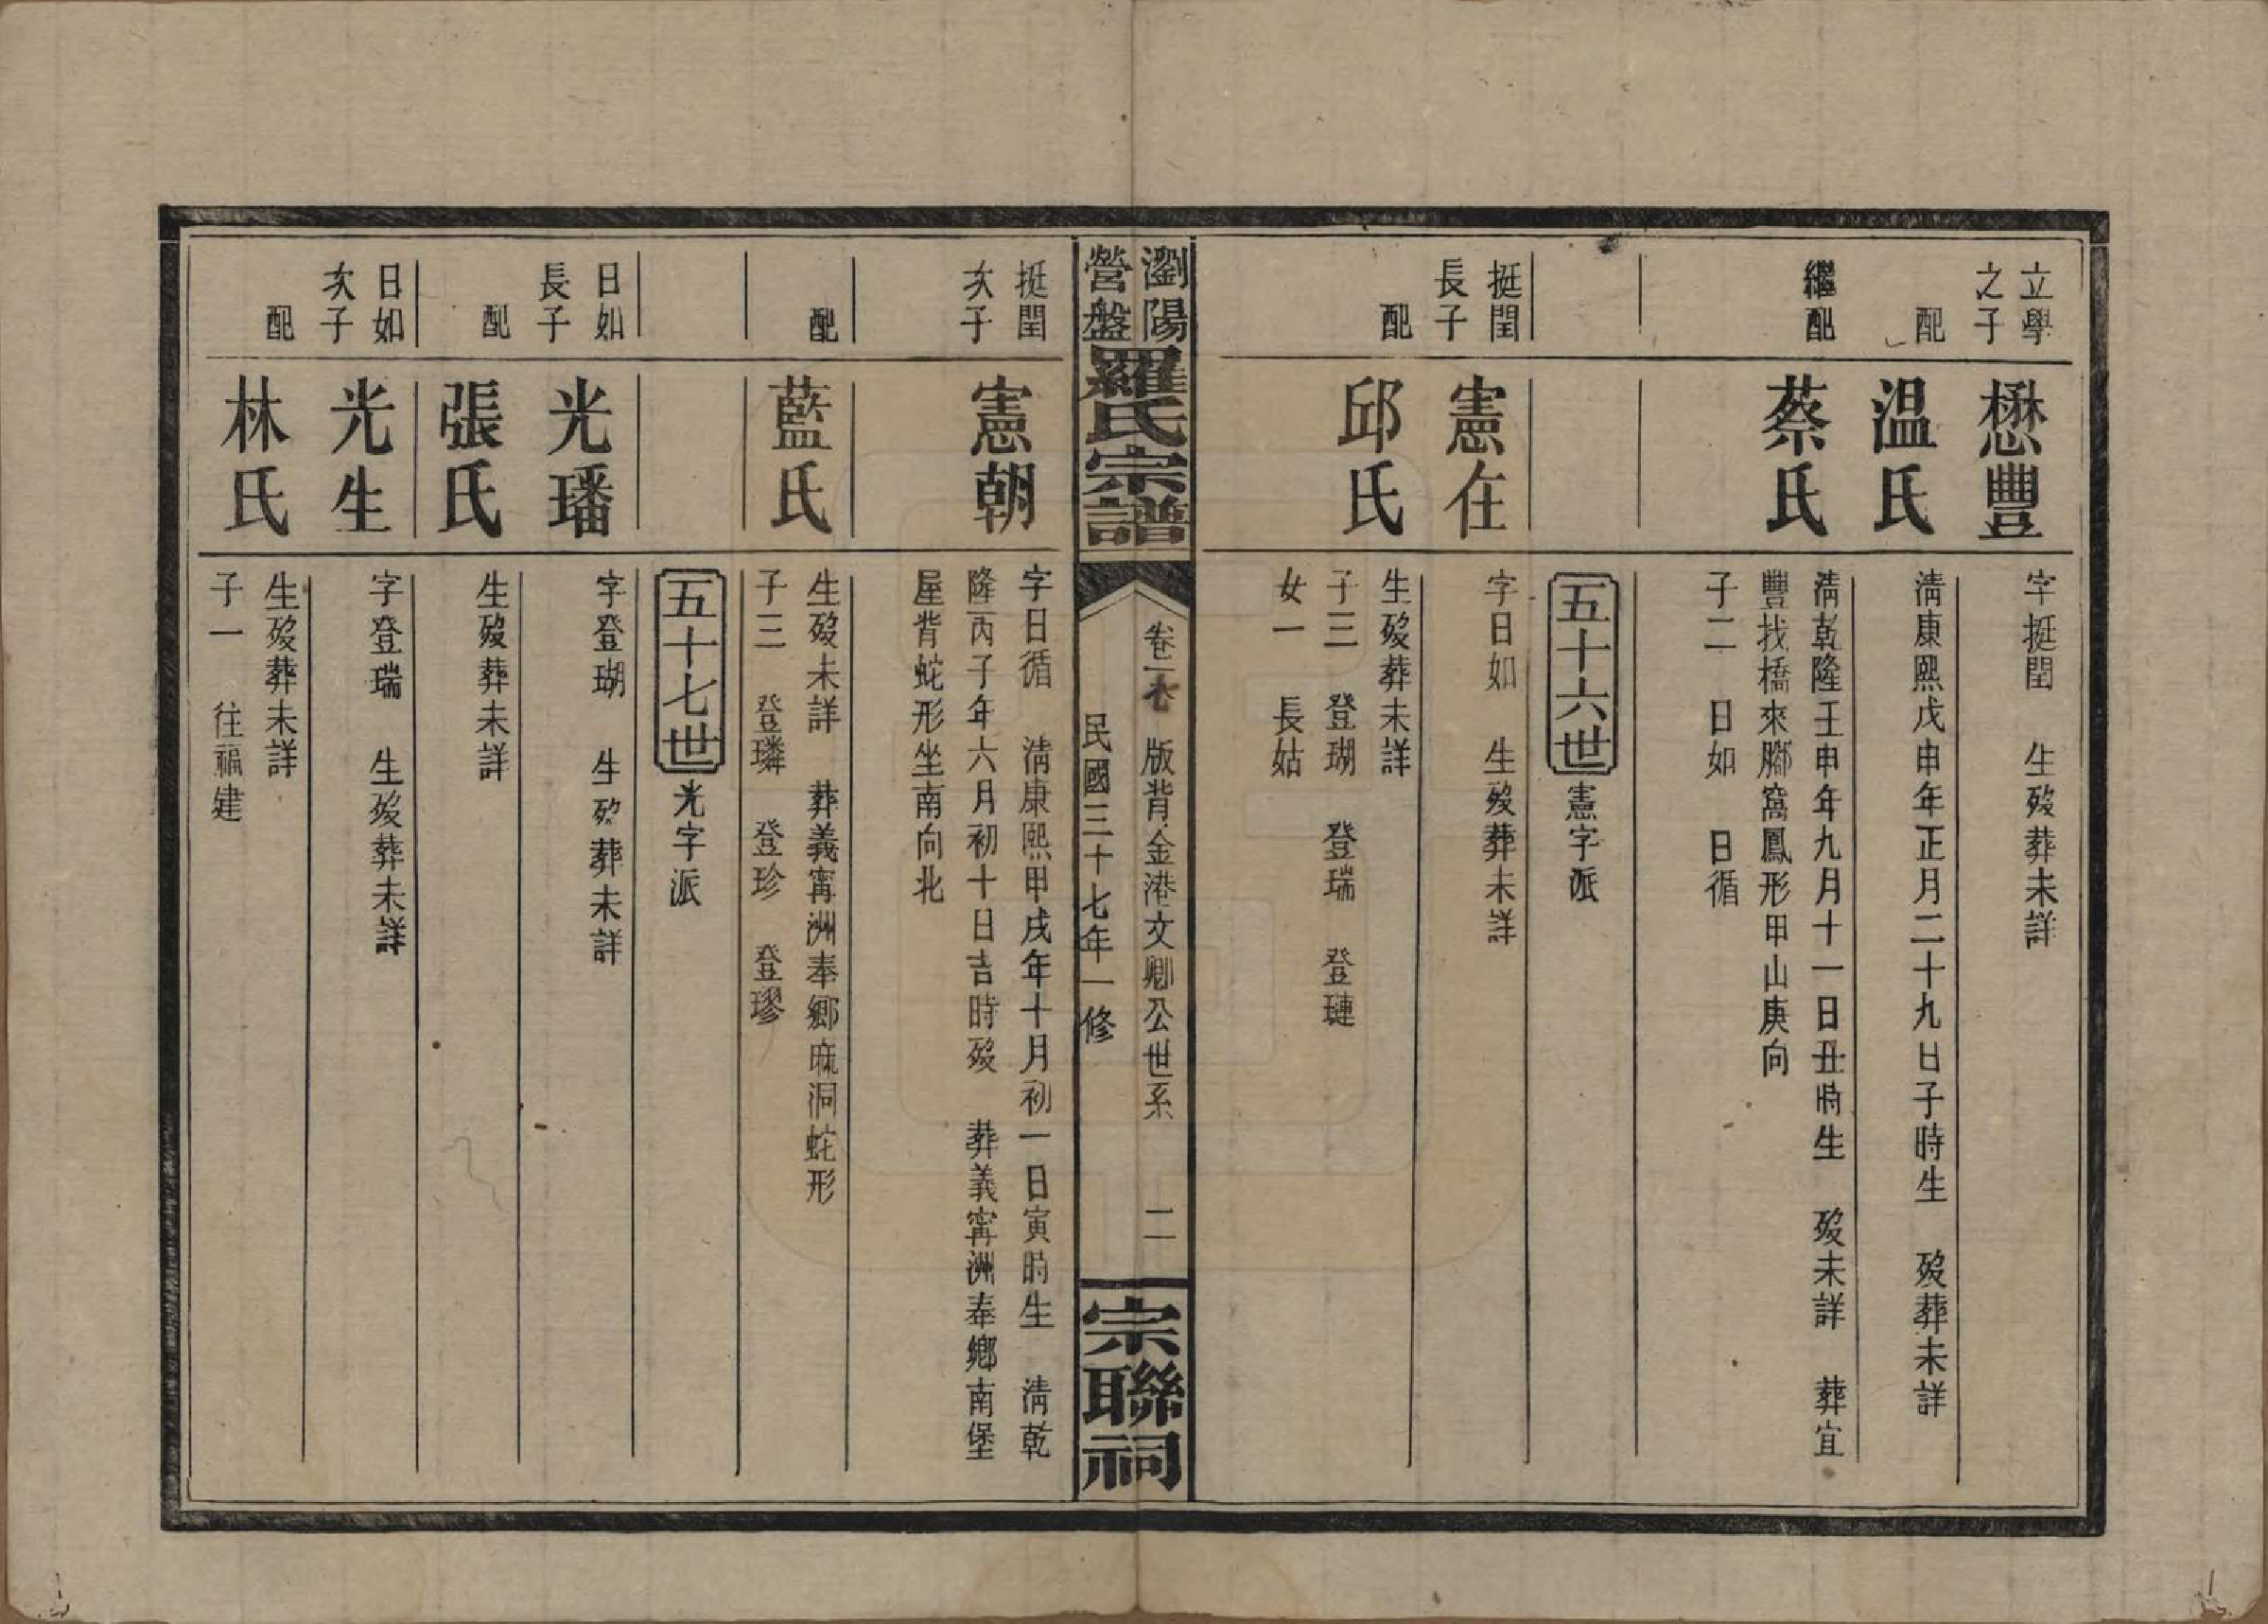 立學
之子
懋豐
字挺閏　生歿葬未詳
配
温氏
清康熙戊申年正月二十九日子時生　歿葬未詳
繼配
蔡氏
清乾隆壬申年九月十一日丑時生　歿未詳　葬宜
豐找橋來腳窩鳳形甲山庚向
子二　日如　日循
五十六世　憲字派
挺閏
長子
憲在
字日如　生歿葬未詳
配
邱氏
生歿葬未詳
子三　登瑚　登瑞　登璉
女一　長姑
瀏陽
營盤
羅氏宗譜
版背金港文卿公世系　二
民國三十七年一修
宗聯祠
挺閏
次子
憲朝
字日循　清康熙甲戌年十月初一日寅時生　清乾
隆丙子年六月初十日吉時歿　葬義甯洲奉鄉南堡
屋背蛇形坐南向北
配
藍氏
生歿未詳　葬義甯洲奉鄉麻洞蛇形
子三　登璘　登珍　登璆
五十七世　光字派
日如
長子
光璠
字登瑚　生歿葬未詳
配
張氏
生歿葬未詳
日如
次子
光生
字登瑞　生歿葬未詳
配
林氏
生歿葬未詳
子一　往福建